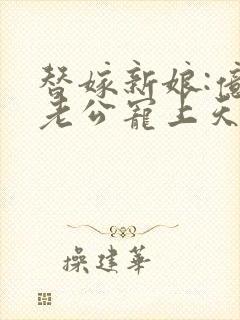 替嫁新娘:億
老公寵上天
操建華